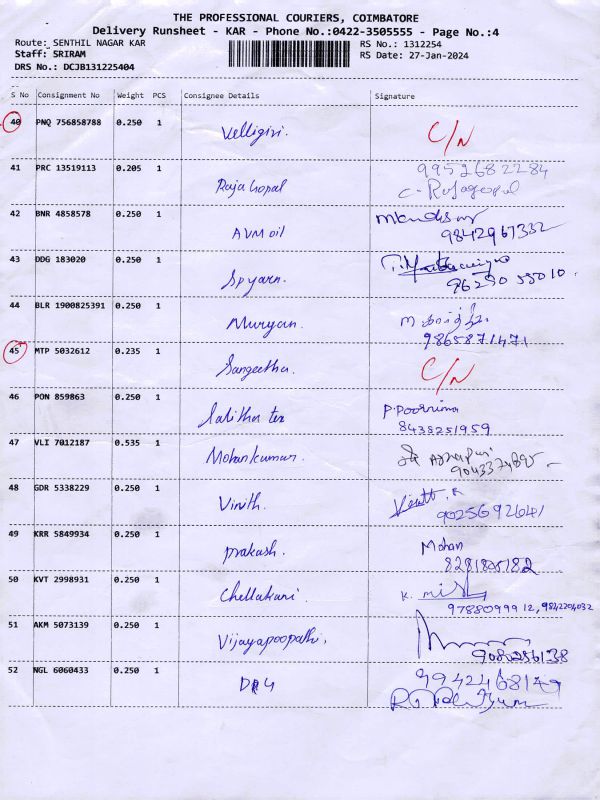 THE PROFESSIONAL COURIERS, COIMBATORE
Delivery Runsheet - KAR - Phone No.:0422-3505555 - Page No.:4
Route: SENTHIL NAGAR KAR
RS No.: 1312254
Staff: SRIRAM
RS Date: 27-Jan-2024
DRS No.: DCJB131225404
S No Consignment No Weight PCS Consignee Details Signature
40 PNQ 756858788 0.250 1 Velligiri. C/N
41 PRC 13519113 0.205 1 Raja Gopal 9952682284
C. Rajagopal
42 BNR 4858578 0.250 1 AVM oil
9842967332
43 DDG 183020 0.250 1 Spyarn.
44 BLR 1900825391 0.250 1 Murugan.
9865871471
45 MTP 5032612 0.235 1 Sangeetha. C/N
46 PON 859863 0.250 1 Lalitha tex P. Poornima
8438251959
47 VLI 7012187 0.535 1 Mohankumar.
48 GDR 5338229 0.250 1 Vinith.
9025692641
49 KRR 5849934 0.250 1 prakash. Mohan
50 KVT 2998931 0.250 1 Chellakani.
9788099912, 9842204032
51 AKM 5073139 0.250 1 Vijayapoopathi.
9080256138
52 NGL 6060433 0.250 1